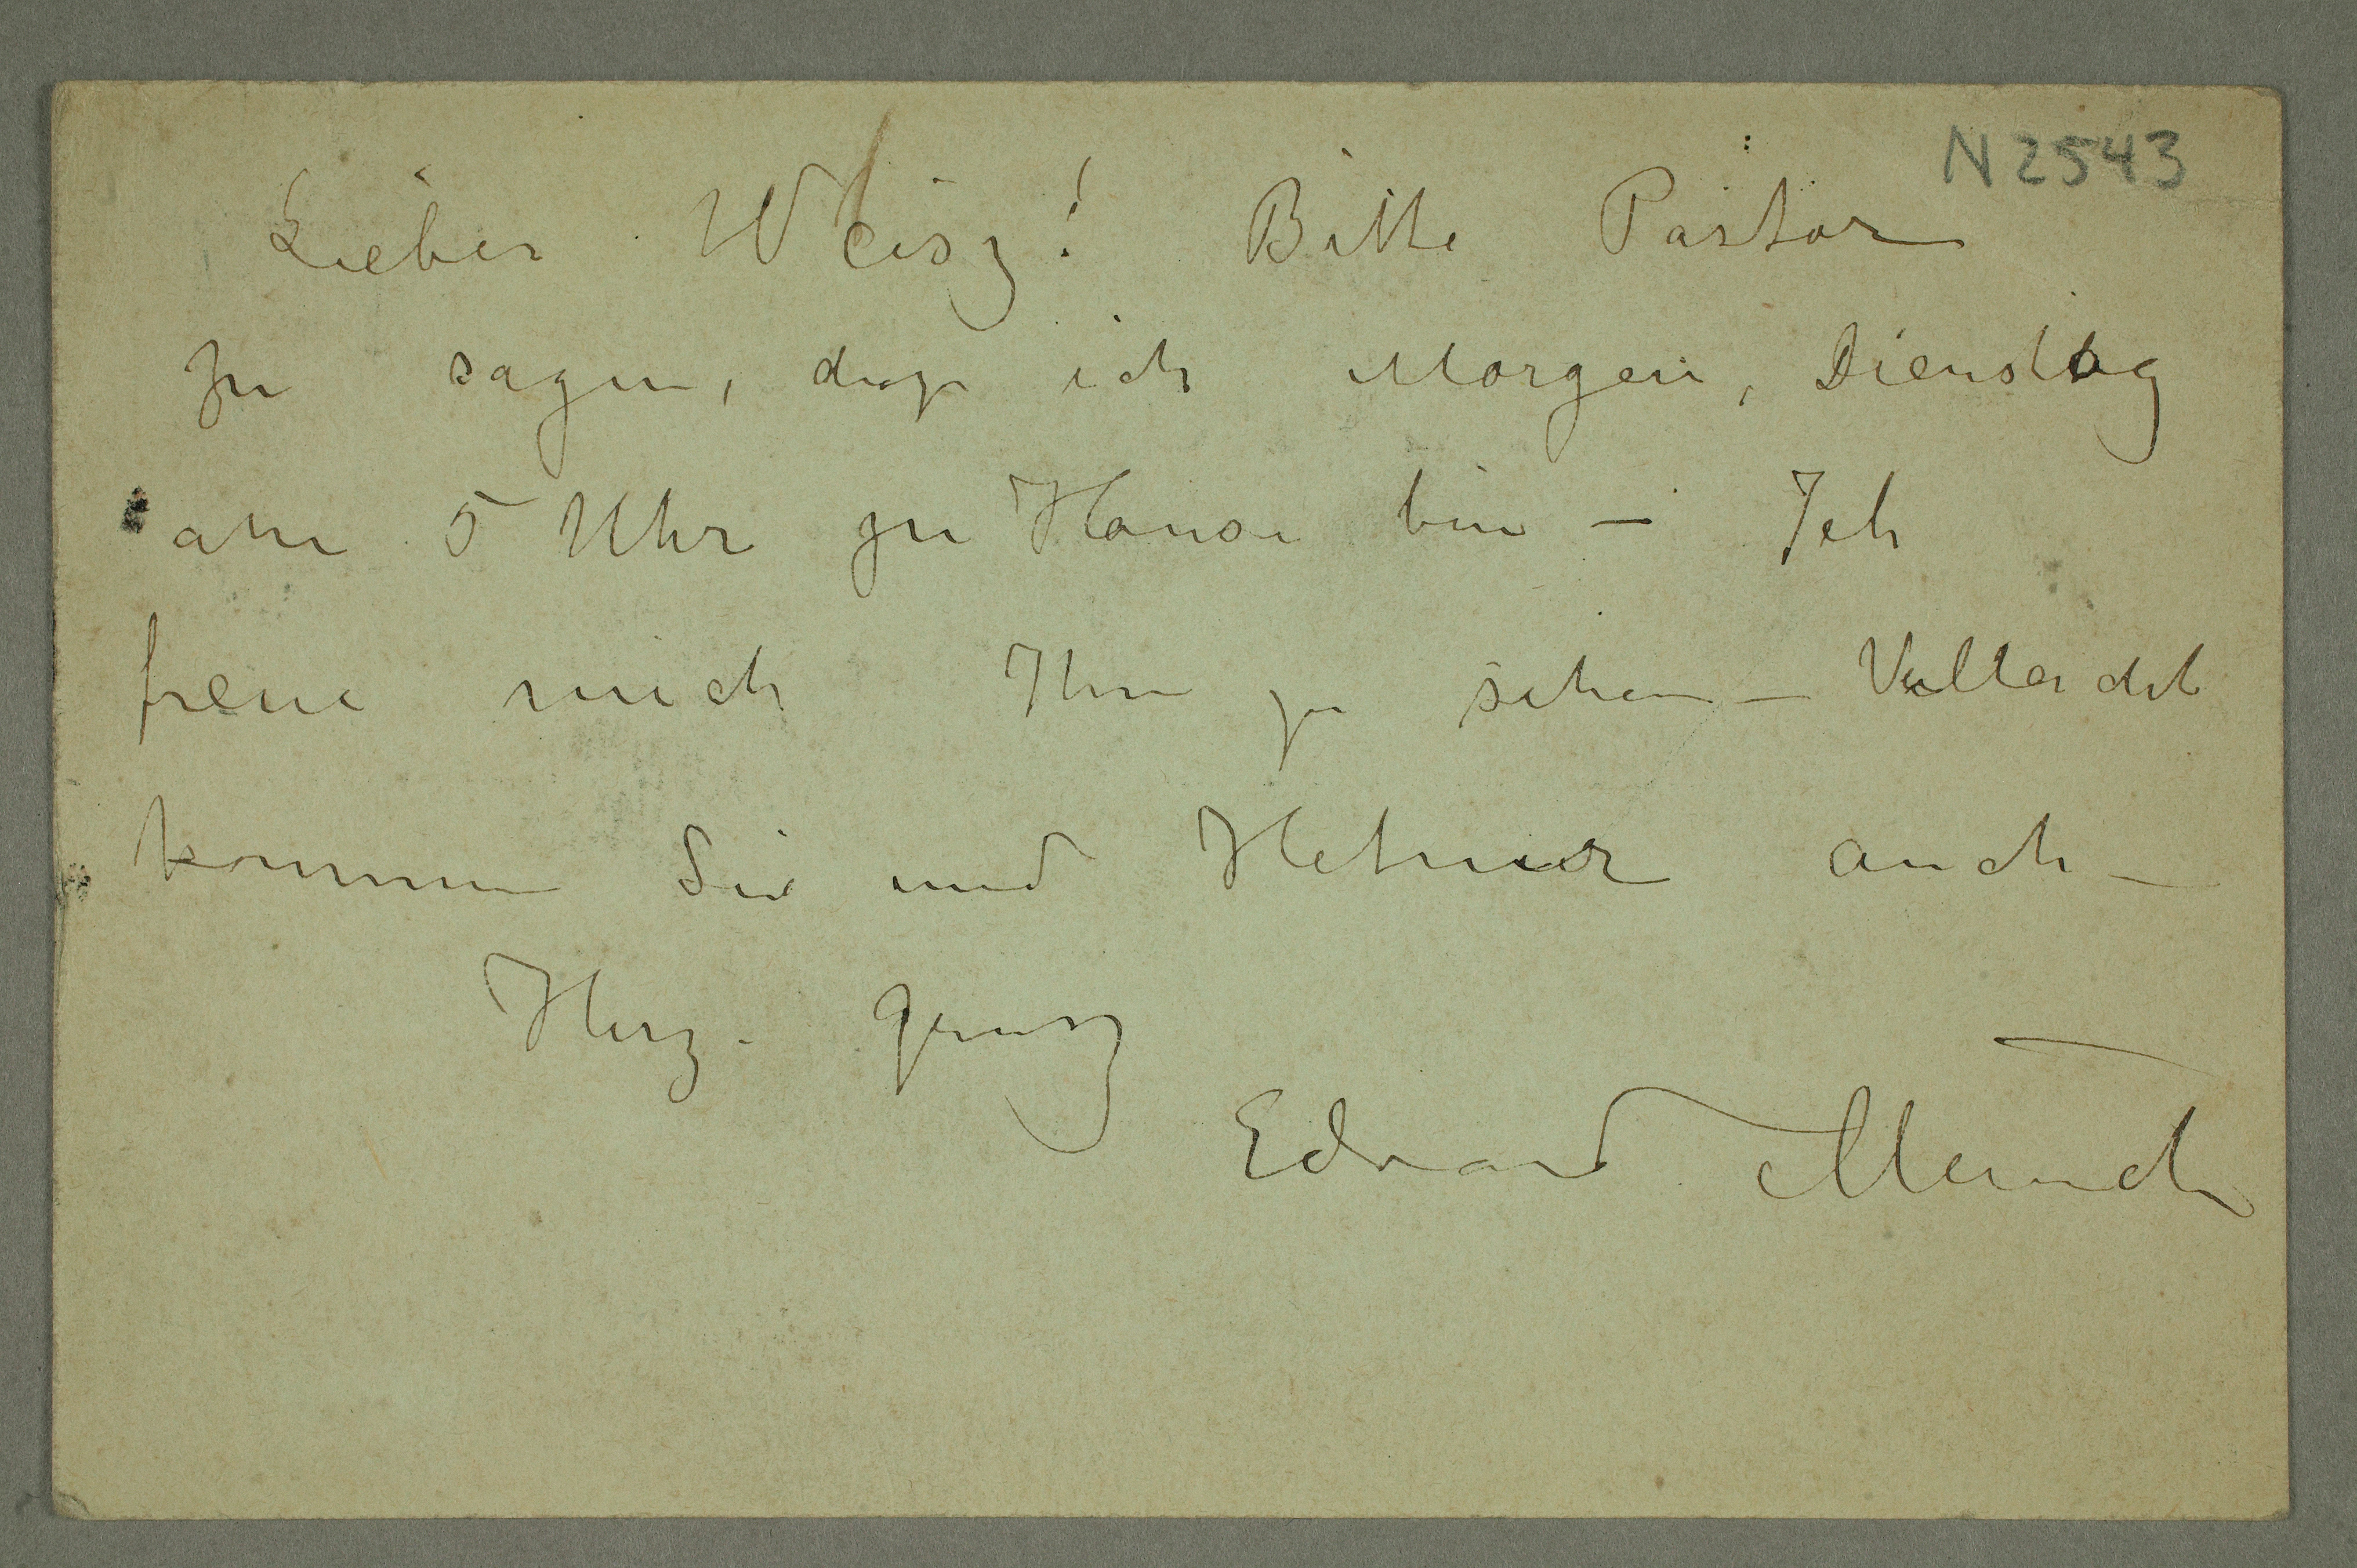 N 2543
Lieber Weisz! Bitte Pastor
zu sagen, dasz ich Morgen, Dienstag
am 5 Uhr zu Hause bin – Ich
freue mich Ihm zu sehen – Vielleicht
kommen Sie und auch –
Herz. Grusz
Edvard Munch